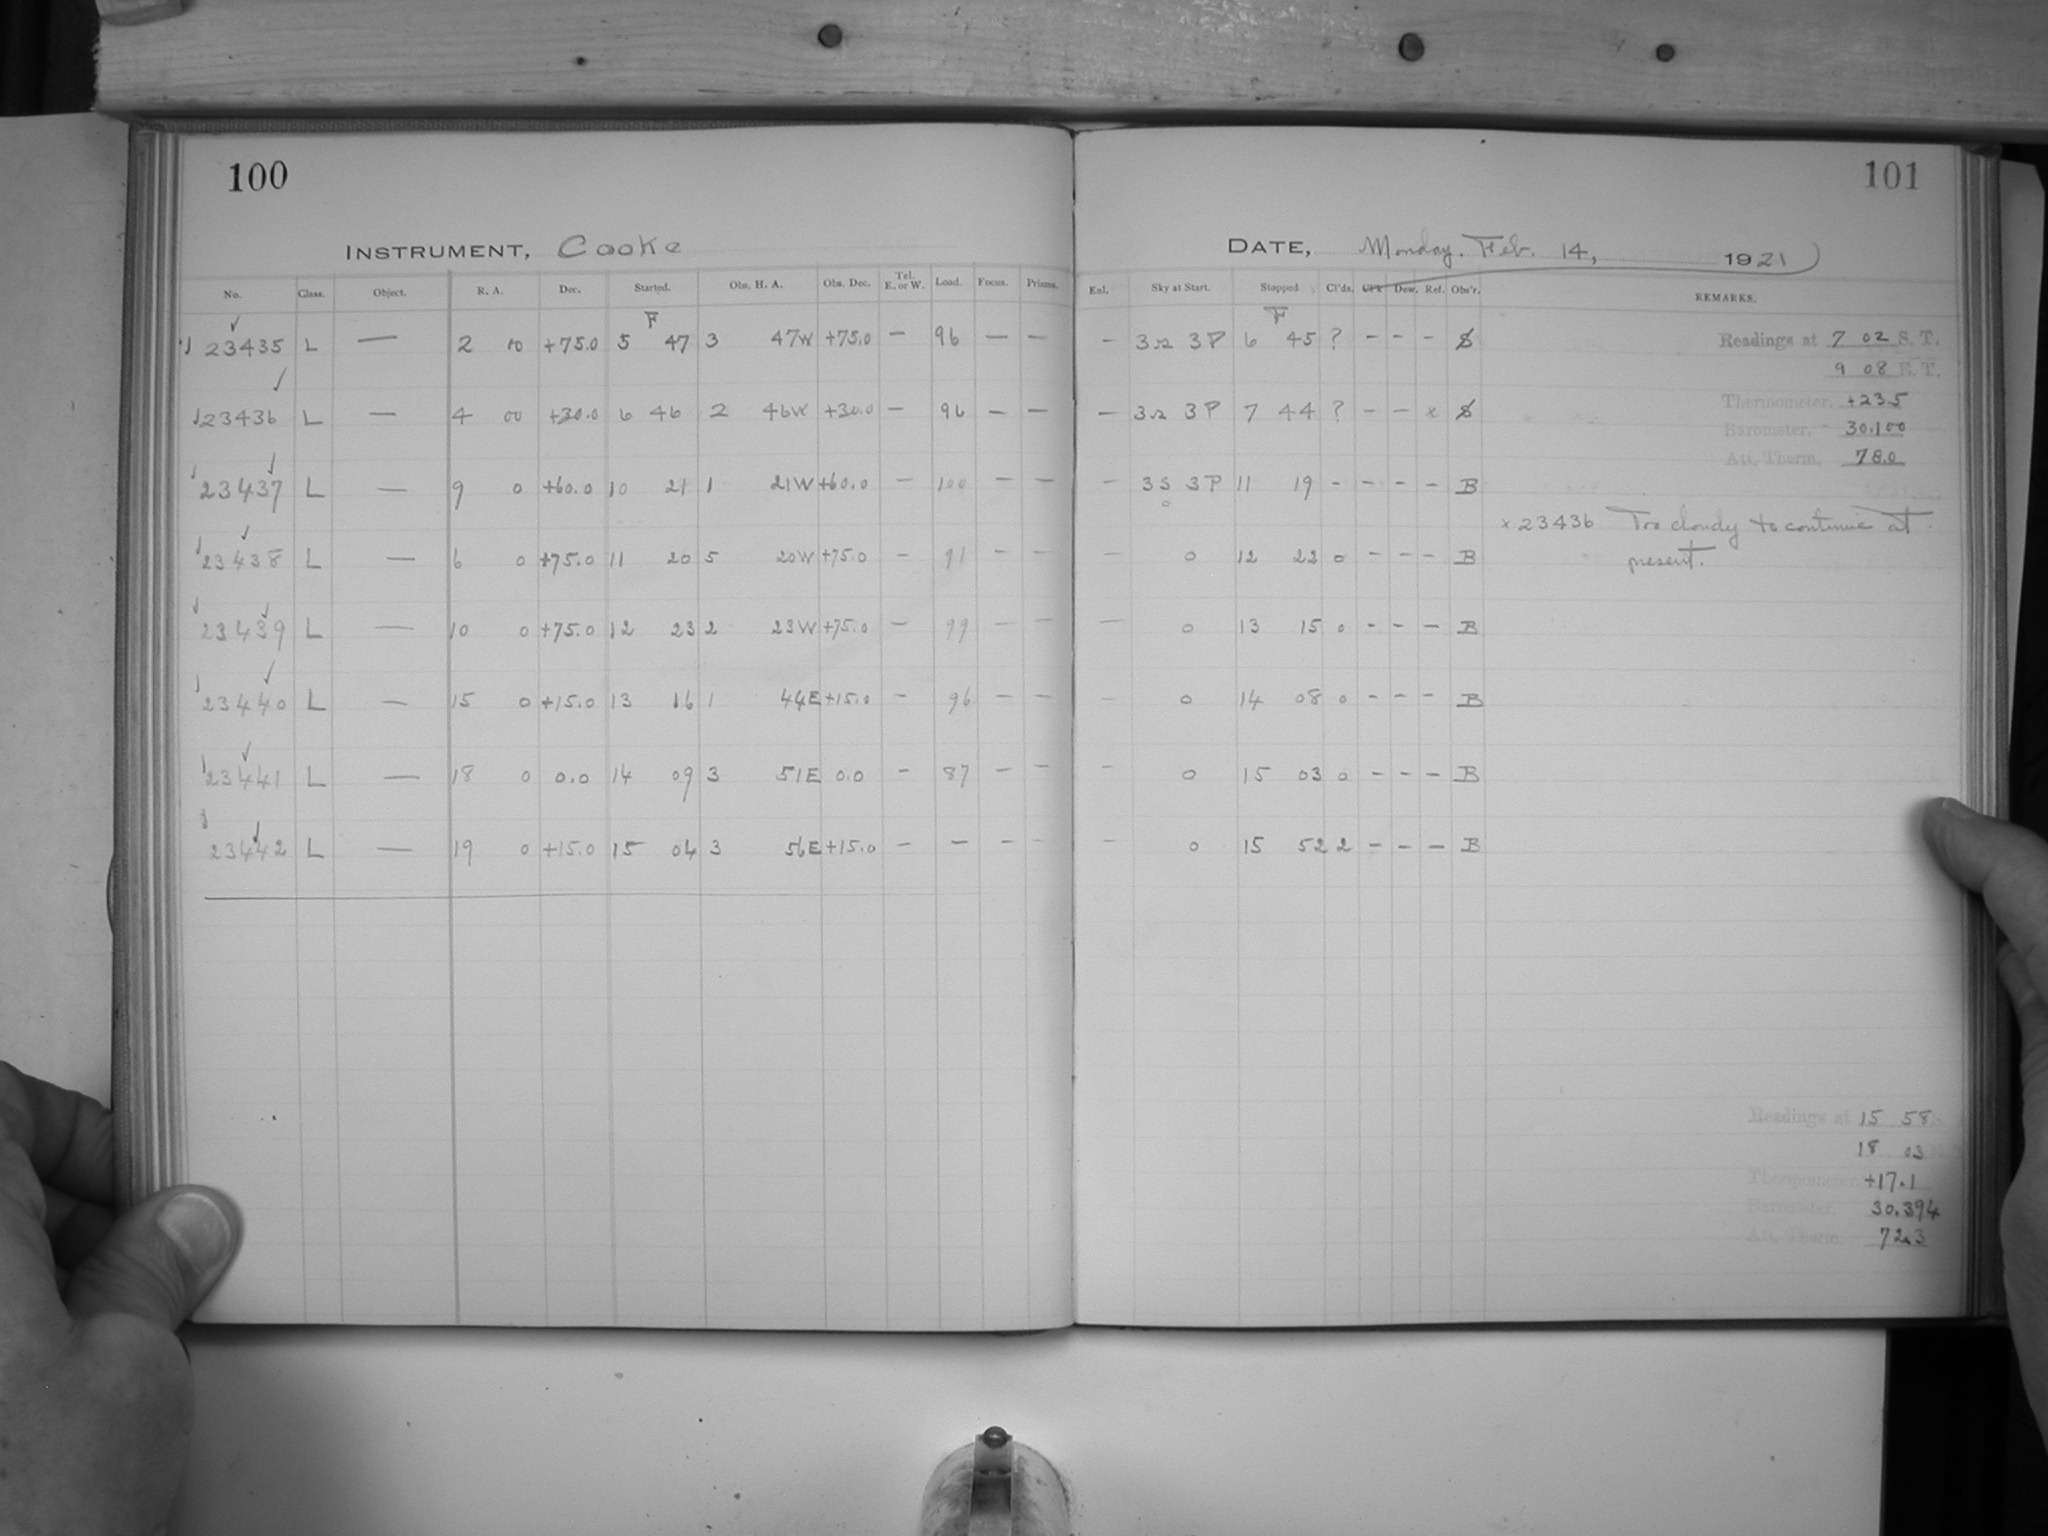 100
101
INSTRUMENT, Cooke
DATE, Monday. Feb. 14, 1921
No. Class. Object. R. A. Dec. Started. Obs. H. A. Obs. Dec. Tel. E. or W. Load. Focus. Prisms. Enl. Sky at Start. Stopped Cl'ds. Dew. Ref. Obs'r. REMARKS.
F F
23435 L — 2 00 +75.0 5 47 3 47W +75.0 — 96 — — — 3 3P 6 45 ? - - - Readings at 7 02 S. T.
9 08 E. T.
23436 L — 4 00 +30.0 6 46 2 46W +30.0 — 96 — — — 3 3P 7 44 ? - - x Thermometer. +23.5
Barometer. 30.100
Att. Therm. 78.0
23437 L — 9 0 +60.0 10 21 1 21W +60.0 — 100 — — — 3S 3P 11 19 - - - - B
x 23436 Too cloudy to continue at
23438 L — 6 0 +75.0 11 20 5 20W +75.0 — 91 — — — 0 12 22 0 - - - B present.
23439 L — 10 0 +75.0 12 23 2 23W +75.0 — 99 — — — 0 13 15 0 - - - B
23440 L — 15 0 +15.0 13 16 1 44E +15.0 — 96 — — — 0 14 08 0 - - - B
23441 L — 18 0 0.0 14 09 3 51E 0.0 — 87 — — — 0 15 03 0 - - - B
23442 L — 19 0 +15.0 15 04 3 56E +15.0 — — — — — 0 15 52 2 - - - B
Readings at 15 58
18 03
Thermometer. +17.1
Barometer. 30.394
Att. Therm. 72.3